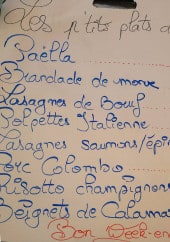 Les p'tits plats d
Paëlla
Brandade de morue
Lasagnes de Boeuf
Polpettes Italienne
Lasagnes saumons/épin
Porc Colombo
Risotto champignons
Beignets de Calama
Bon Week-en